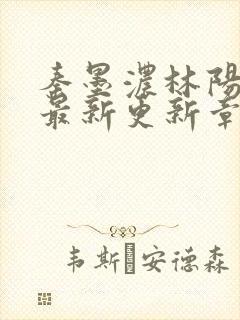 秦墨濃林陽
最新更新章
韦斯�安德森